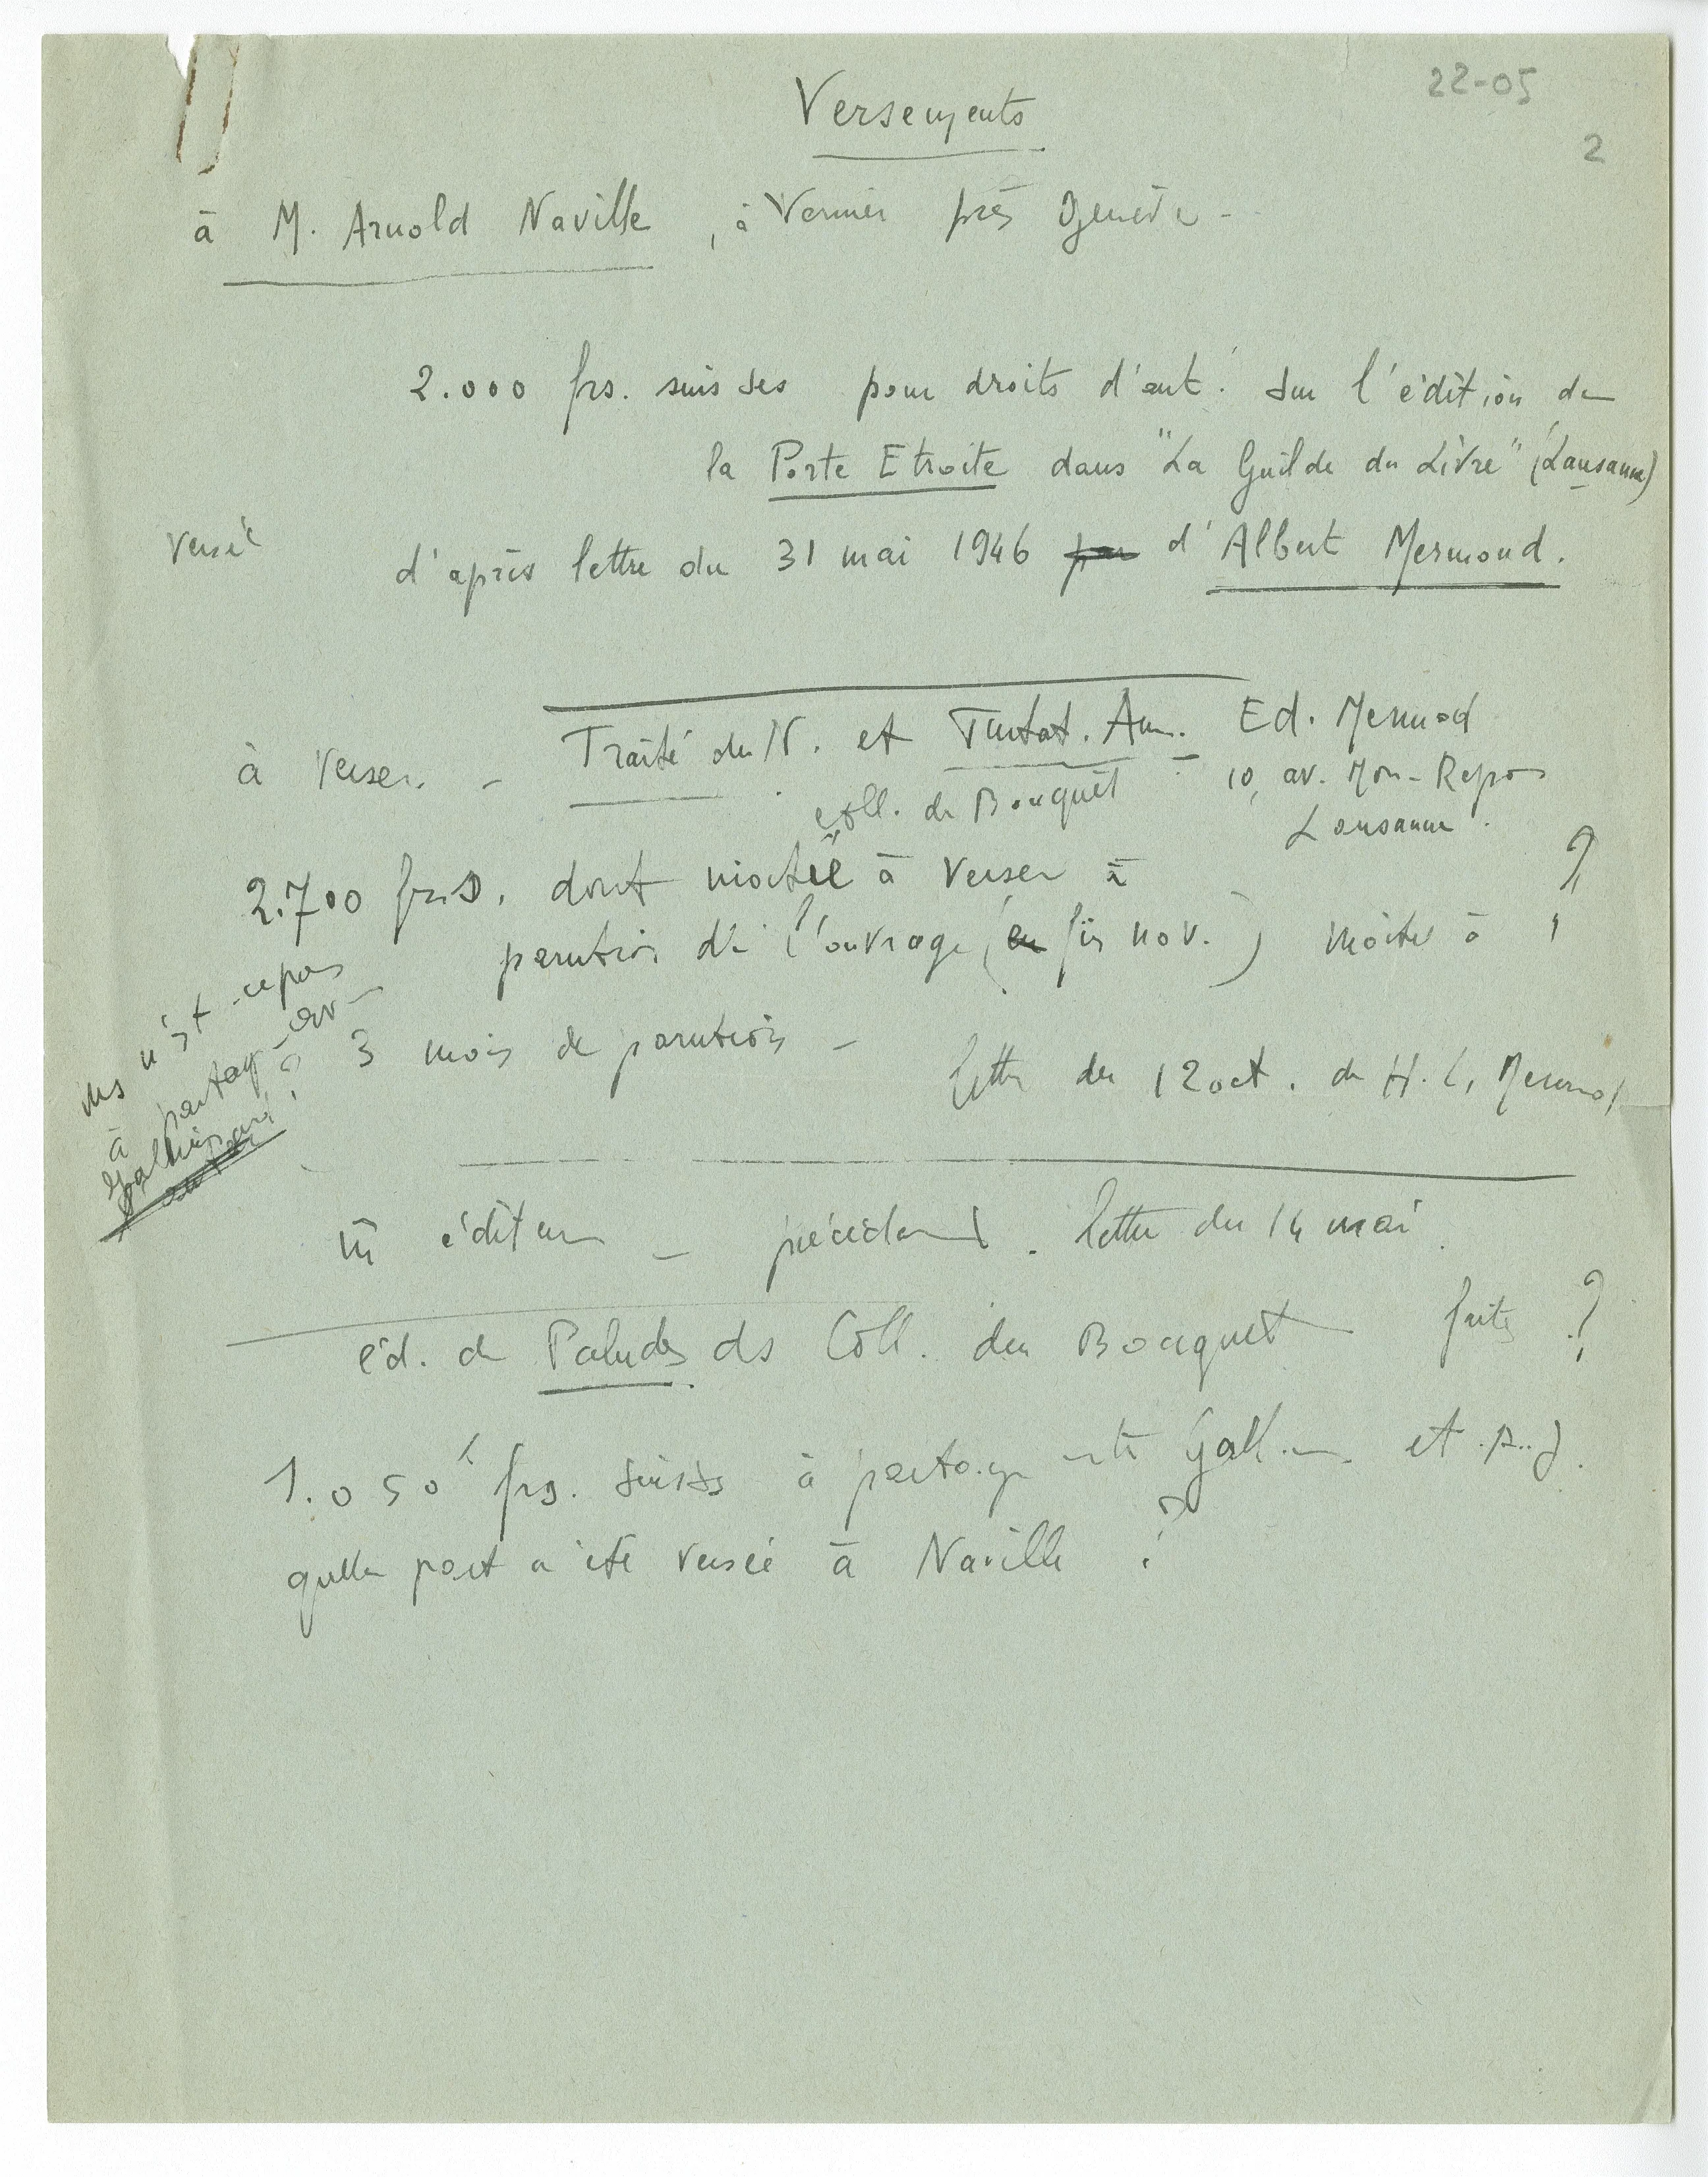 22-05
2
Versements
à M. Arnold Naville, à Vernier près Genève -
2.000 frs. suisses pour droits d'aut. sur l'édition de
la Porte Etroite dans "La Guilde du Livre" (Lausanne)
versé
d'après lettre du 31 mai 1946 par d'Albert Mermoud.
à verser - Traité du N. et Tentat. Am. Ed. Mermod
coll. du Bouquet 10, av. Mon-Repos
Lausanne.
2.700 frs, dont moitié à verser à ?
parution de l'ouvrage (en fin nov.) moitié à
3 mois de parution -
lettre du 12 oct. de H. L. Mermod
ms n'est-ce pas
à partag. av-
Gallimard ?
m̄ éditeur - précédent. lettre du 14 mai.
éd. de Paludes ds Coll. du Bouquet faite ?
1.050 frs. suisses à partag entre Gallim. et
quelle part a été versée à Naville ?